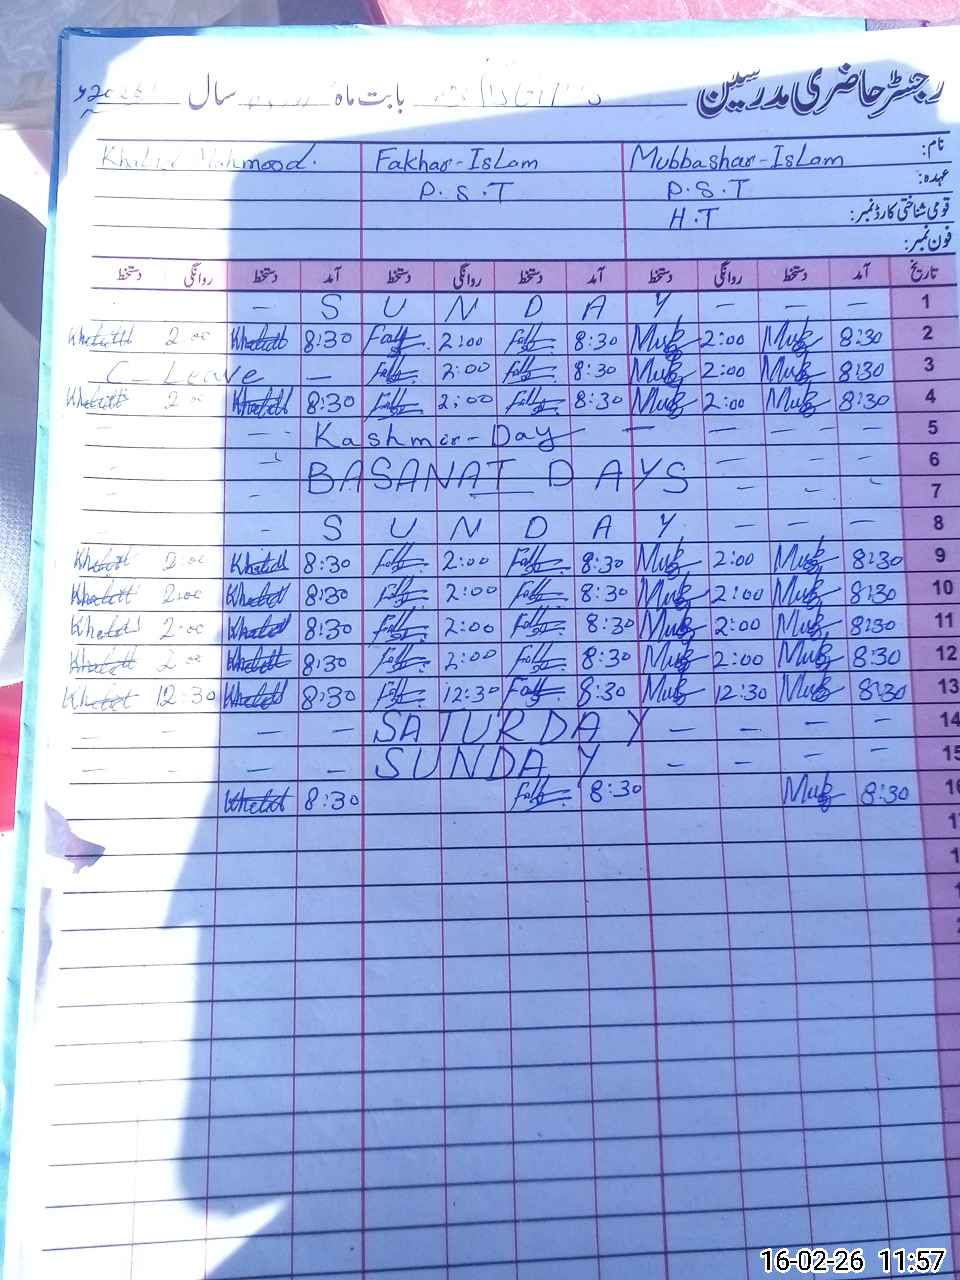 رجسٹر حاضری مدرسین بابت ماہ سال
نام: Mubbashar-Islam Fakhar-Islam Khalid Mehmood.
عہدہ: P.S.T P.S.T
قومی شناختی کارڈ نمبر: H.T
فون نمبر:
تاریخ آمد دستخط روانگی دستخط آمد دستخط روانگی دستخط آمد دستخط روانگی دستخط
- S U N D A Y - - - 1
2:00 8:30 2:00 8:30 Mub 2:00 Mub 8:30 2
C - Leave - 2:00 8:30 Mub 2:00 Mub 8:30 3
2:00 8:30 2:00 8:30 Mub 2:00 Mub 8:30 4
- - - Kashmir-Day - - - - 5
- - BASANAT DAYS - - - 6
- - - - - 7
- - S U N D A Y - - - 8
2:00 8:30 2:00 8:30 Mub 2:00 Mub 8:30 9
2:00 8:30 2:00 8:30 Mub 2:00 Mub 8:30 10
2:00 8:30 2:00 8:30 Mub 2:00 Mub 8:30 11
2:00 8:30 2:00 8:30 Mub 2:00 Mub 8:30 12
12:30 8:30 12:30 8:30 Mub 12:30 Mub 8:30 13
- - - - SATURDAY - - - - 14
- - - - SUNDAY - - - - 15
8:30 8:30 Mub 8:30
16-02-26 11:57